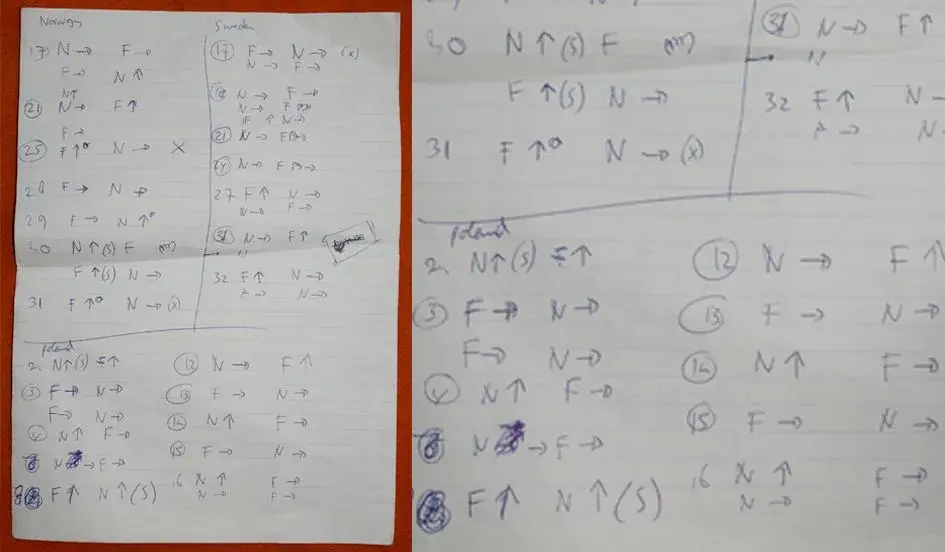 Norway
17 N → F →
F → N ↑
N ↑
21 N → F ↑
F →
25 F ↑ N → X
28 F → N →
29 F → N ↑
30 N ↑ (S) F
F ↑ (S) N →
31 F ↑ N → (x)
Sweden
17 F → N → (x)
N → F →
N → F →
N →
F ↑ N →
21 N → F
24 N → F
27 F ↑ N →
N → F →
31 N → F ↑
N
32 F ↑ N →
N →
Poland
2. N ↑ (S) F ↑
3 F → N →
F → N →
4 N ↑ F →
N → F →
8 F ↑ N ↑ (S)
12 N → F ↑
13 F → N →
14 N ↑ F →
15 F → N →
16 N ↑ F →
N → F →
30 N ↑ (S) F
F ↑ (S) N →
31 F ↑ N → (x)
31 N → F ↑
N
32 F ↑ N →
N
Poland
2. N ↑ (S) F ↑
3 F → N →
F → N →
4 N ↑ F →
N → F →
F ↑ N ↑ (S)
12 N → F ↑
13 F → N →
14 N ↑ F →
15 F → N →
16 N ↑ F →
N → F →